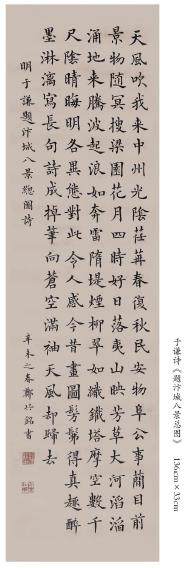 天風吹我来中州光陰荏苒春復秋民安物阜公事蕳目前
景物随冥搜梁園花月四時好日落夷山映芳草大河滔滔
涌地来騰波起浪如奔雷隋堤煙柳翠如織鐵塔摩空數千
尺陰晴晦明各異態對此令人感今昔畫圖髣髴得真趣醉
墨淋漓寫長句詩成掉筆向蒼空满袖天風却歸去
明于謙題汴城八景總圖詩
辛未之春鄭 銘書
于谦诗《题汴城八景总图》 136cm×33cm